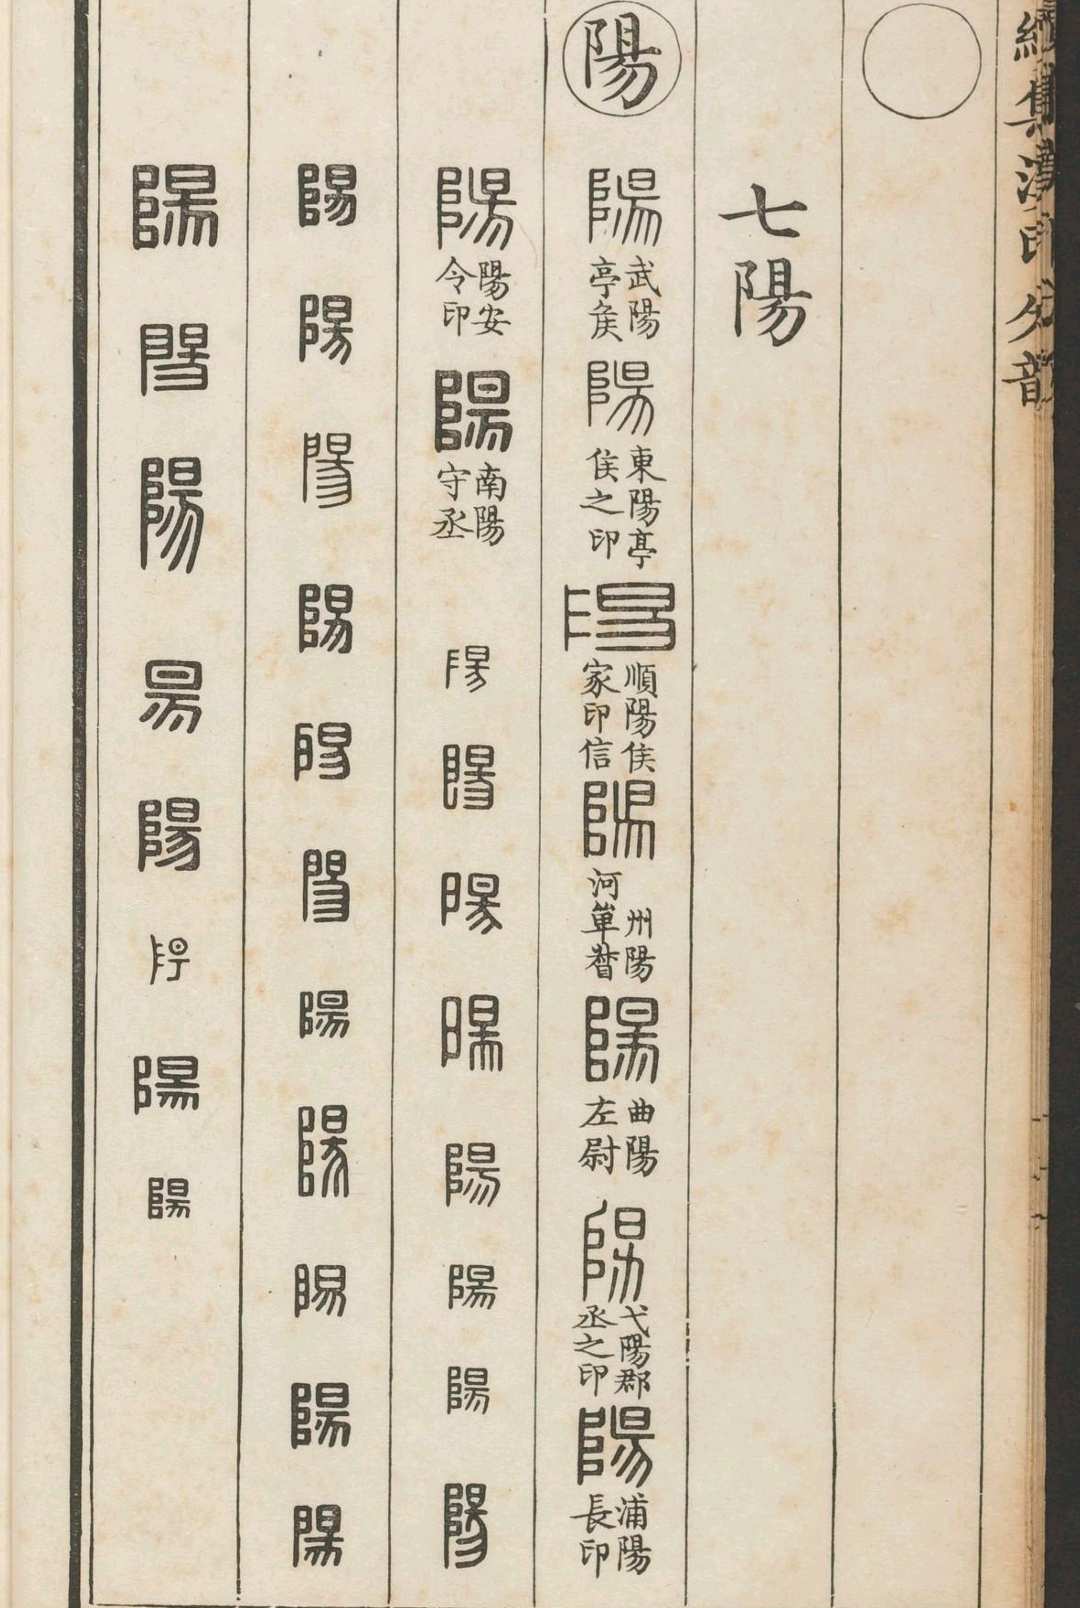 續集漢印分韻
七陽
陽
陽 武陽亭侯
陽 東陽亭侯之印
陽 順陽侯家印信
陽 州陽河單督
陽 曲陽左尉
陽 弋陽郡丞之印
陽 浦陽長印
陽 陽安令印
陽 南陽守丞
陽 陽 陽 陽 陽 陽 陽 陽
陽 陽 陽 陽 陽 陽 陽 陽 陽 陽 陽
陽 陽 陽 昜 陽 陽 陽 陽